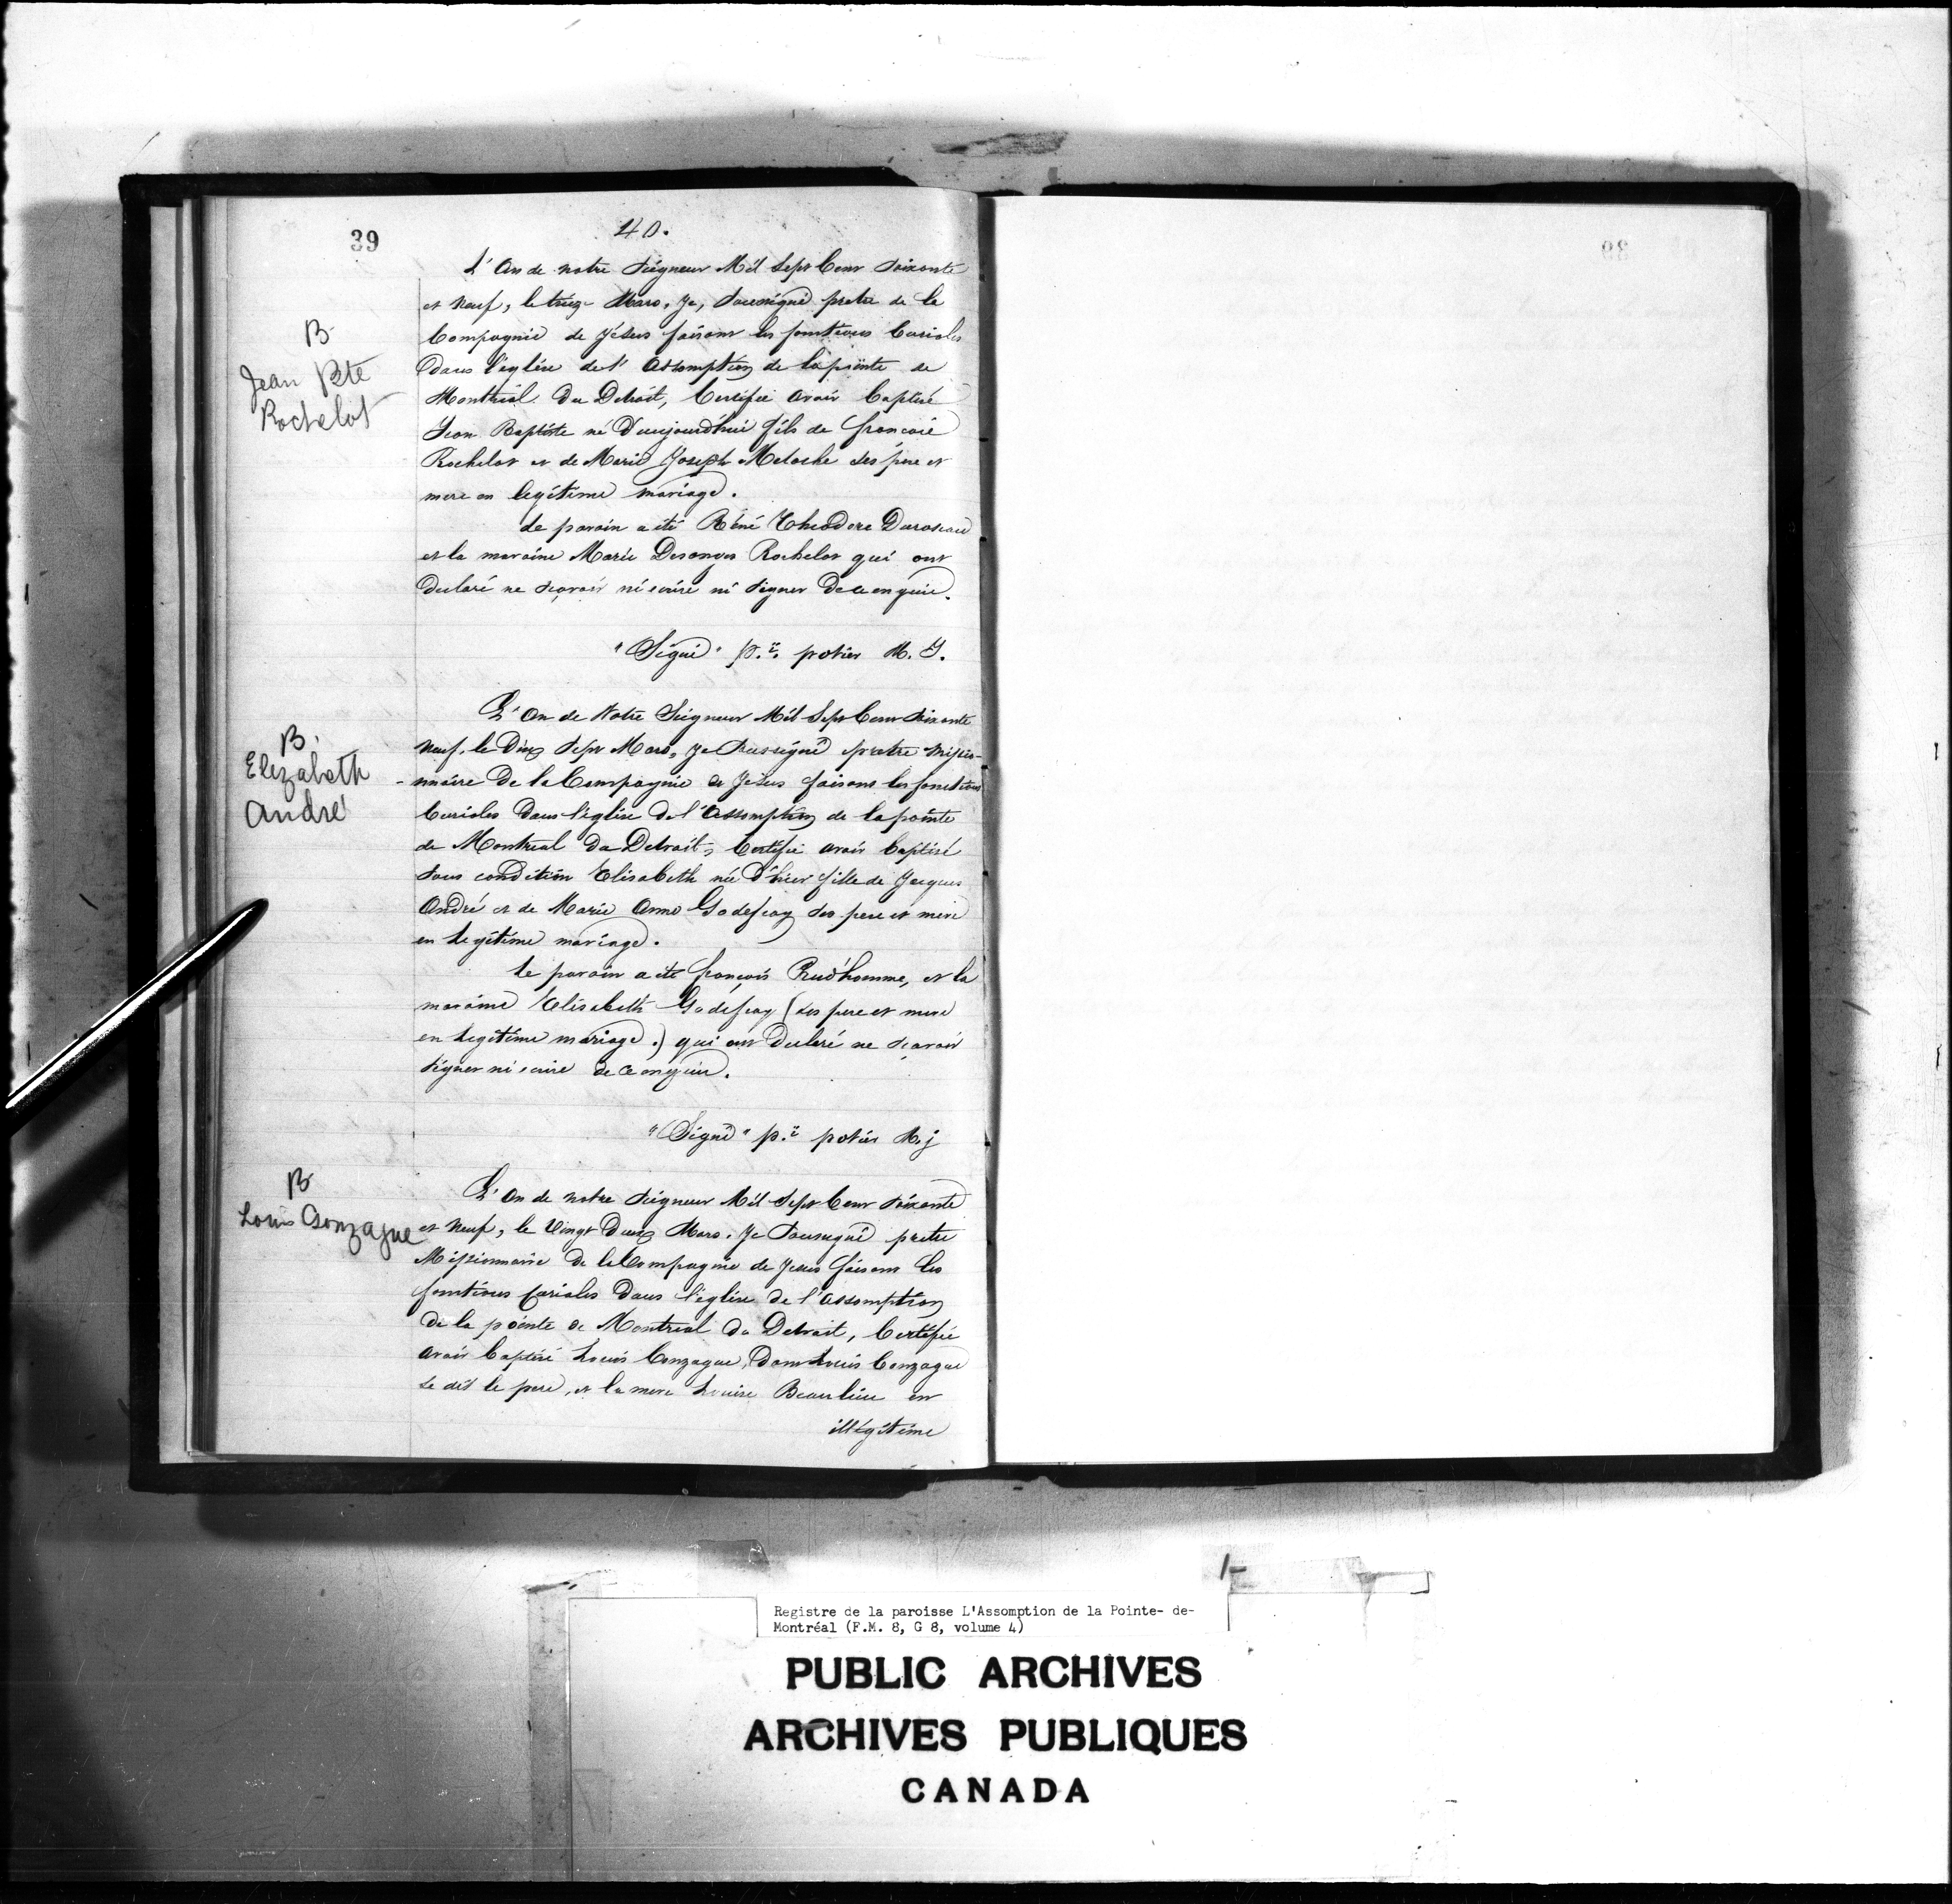 39
40.
L'An de notre Seigneur Mil Sept Cent Soixante
et Neuf, le treize Mars, Je, Soussigné pretre de la
Compagnie de Jésus faisant les fonctions Curiales
dans l'église de l'Assomption de la pointe de
Montréal du Detroit, Certifie avoir Baptisé
Jean Baptiste né d'aujourd'hui fils de francois
Rochelot et de Marie Joseph Meloche ses père et
mere en legitime mariage.
Le parain a été Réné Théodore
et la maraine Marie Desanges Rochelot qui ont
declaré ne sçavoir ni écrire ni signer de ce enquis.
"Signé" p.re potier M. J.
B
Jean Bte
Rochelot
L'An de Notre Seigneur Mil Sept Cent Soixante
Neuf, le Dix Sept Mars, Je Soussigné pretre missio-
-nnaire de la Compagnie de Jésus faisant les fonctions
Curiales dans l'église de l'Assomption de la pointe
de Montreal du Detroit, Certifie avoir baptisé
sous condition Elisabeth née d'hier fille de Jacques
André et de Marie Anne Godefroy ses pere et mere
en legitime mariage.
Le parain a été françois Prud'homme, et la
maraine Elisabeth Godefroy (ses pere et mere
en legitime mariage.) qui ont declaré ne sçavoir
signer ni ecrire de ce enquis.
"Signé" p.re potier M. j
B.
Elizabeth
André
L'An de notre Seigneur Mil Sept Cent Soixante
et Neuf, le Vingt Deux Mars, Je Soussigné pretre
Missionnaire de la Compagnie de Jesus faisant les
fonctions Curiales dans l'église de l'Assomption
de la pointe de Montreal du Detroit, Certifie
avoir baptisé Louis Conzague, dont Louis Conzague
se dit le pere, et la mere Louise Beaulieu en
illégitime
B
Louis Gonzague
39
1-
Registre de la paroisse L'Assomption de la Pointe- de-
Montréal (F.M. 8, G 8, volume 4)
PUBLIC ARCHIVES
ARCHIVES PUBLIQUES
CANADA